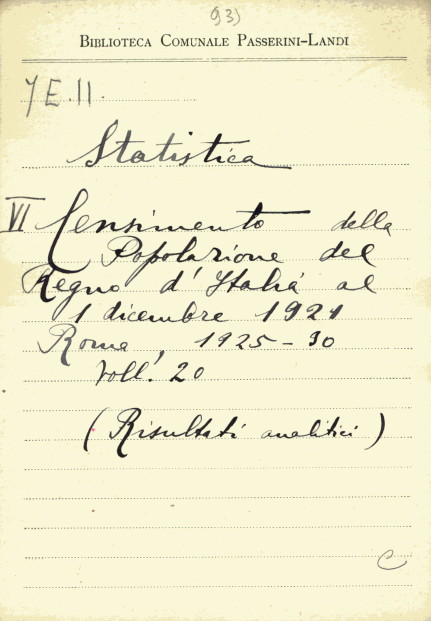 93)
BIBLIOTECA COMUNALE PASSERINI-LANDI
7 E. 11.
Statistica
VI Censimento della
Popolazione del
Regno d'Italia al
1 dicembre 1921
Roma, 1925-30
Voll. 20
(Risultati analitici)
C